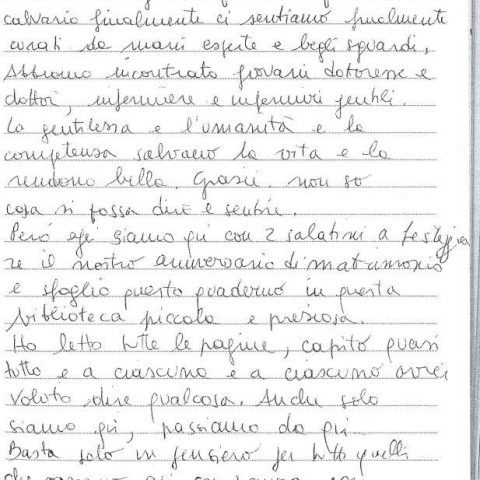 calvario finalmente ci sentiamo finalmente
curati da mani esperte e begli sguardi,
Abbiamo incontrato giovani dottoresse e
dottori, infermiere e infermieri gentili.
La gentilezza e l'umanità e la
competenza salvano la vita e la
rendono bella. Grazie, non so
cosa si possa dire e sentire.
Però oggi siamo qui con 2 salatini a festeggia
re il nostro anniversario di matrimonio
e sfoglio questo quaderno in questa
biblioteca piccola e preziosa.
Ho letto tutte le pagine, capito quasi
tutto e a ciascuno e a ciascuno avrei
voluto dire qualcosa. Anche solo
siamo qui, passiamo da qui
Basta solo un pensiero per tutti quelli
che